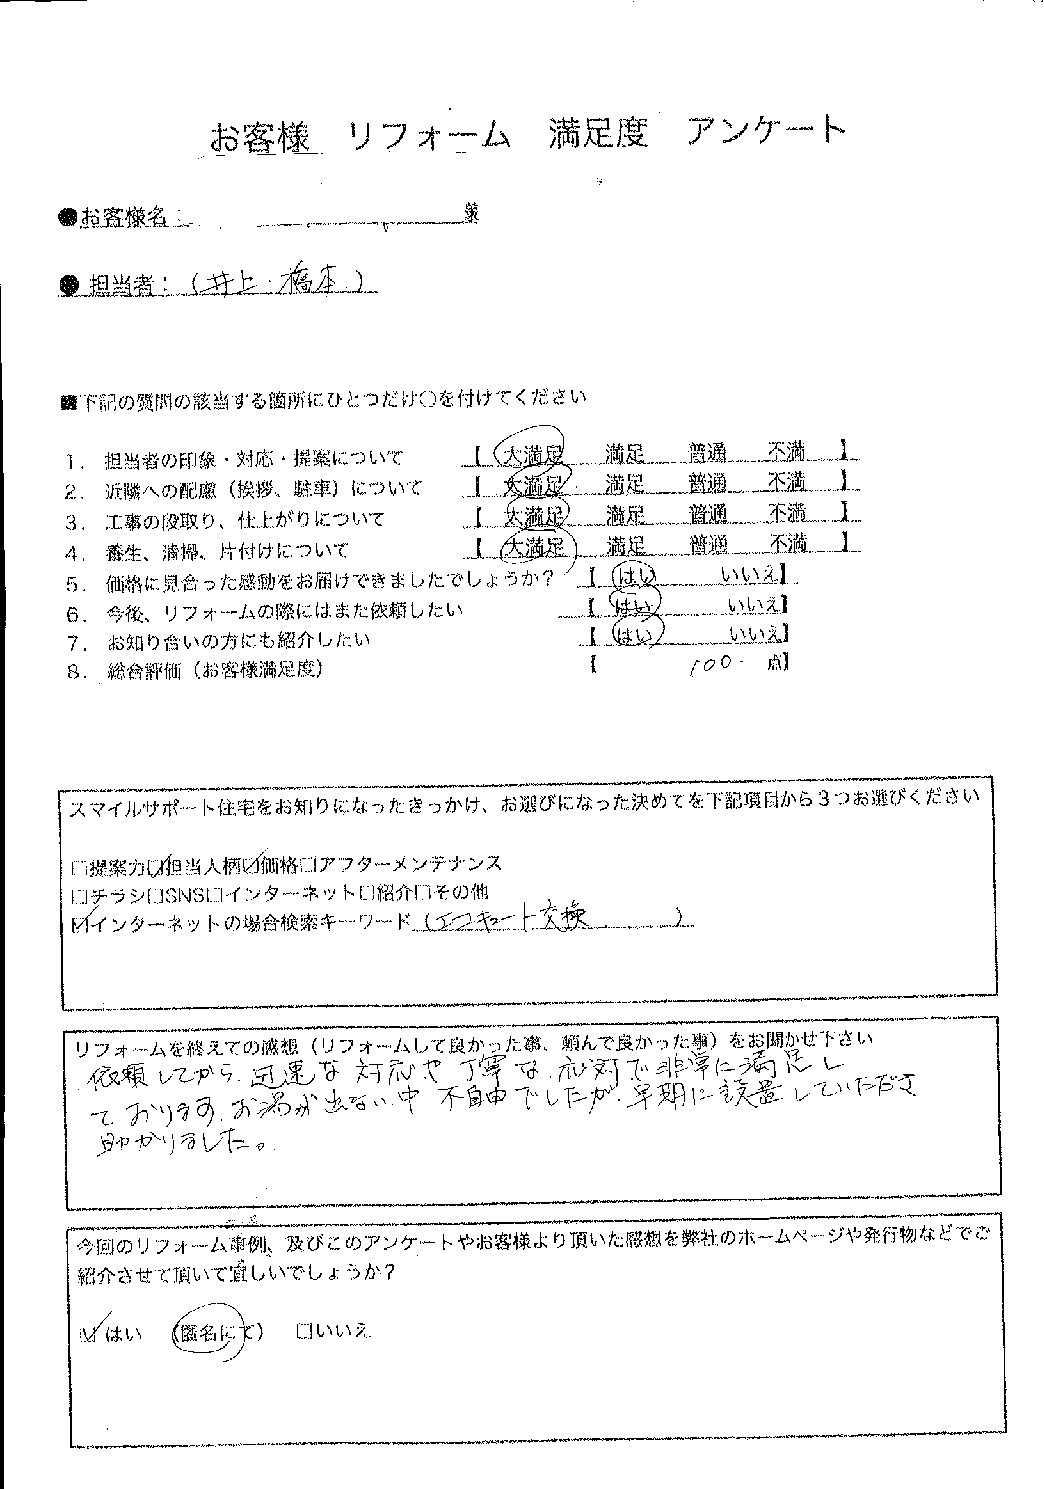 お客様　リフォーム　満足度　アンケート
●お客様名：　　　　　　　　様
● 担当者：（井上・橋本）
■下記の質問の該当する箇所にひとつだけ○を付けてください
1． 担当者の印象・対応・提案について　【 大満足　満足　普通　不満 】
2． 近隣への配慮（挨拶、駐車）について　【 大満足　満足　普通　不満 】
3． 工事の段取り、仕上がりについて　【 大満足　満足　普通　不満 】
4． 養生、清掃、片付けについて　【 大満足　満足　普通　不満 】
5． 価格に見合った感動をお届けできましたでしょうか？　【 はい　いいえ】
6． 今後、リフォームの際にはまた依頼したい　【 はい　いいえ】
7． お知り合いの方にも紹介したい　【 はい　いいえ】
8． 総合評価（お客様満足度）　【 100 点】
スマイルサポート住宅をお知りになったきっかけ、お選びになった決めてを下記項目から３つお選びください
□提案力☑担当人柄☑価格□アフターメンテナンス
□チラシ□SNS□インターネット□紹介□その他
☑インターネットの場合検索キーワード（エコキュート交換　）
リフォームを終えての感想（リフォームして良かった事、頼んで良かった事）をお聞かせ下さい
依頼してから、迅速な対応や丁寧な応対で非常に満足し
ております。お湯が出ない中 不自由でしたが、早期に設置していただき
助かりました。
今回のリフォーム事例、及びこのアンケートやお客様より頂いた感想を弊社のホームページや発行物などでご
紹介させて頂いて宜しいでしょうか？
☑はい　（匿名にて）　□いいえ